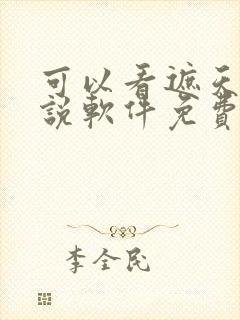 可以看遮天
説軟件免費
李全民